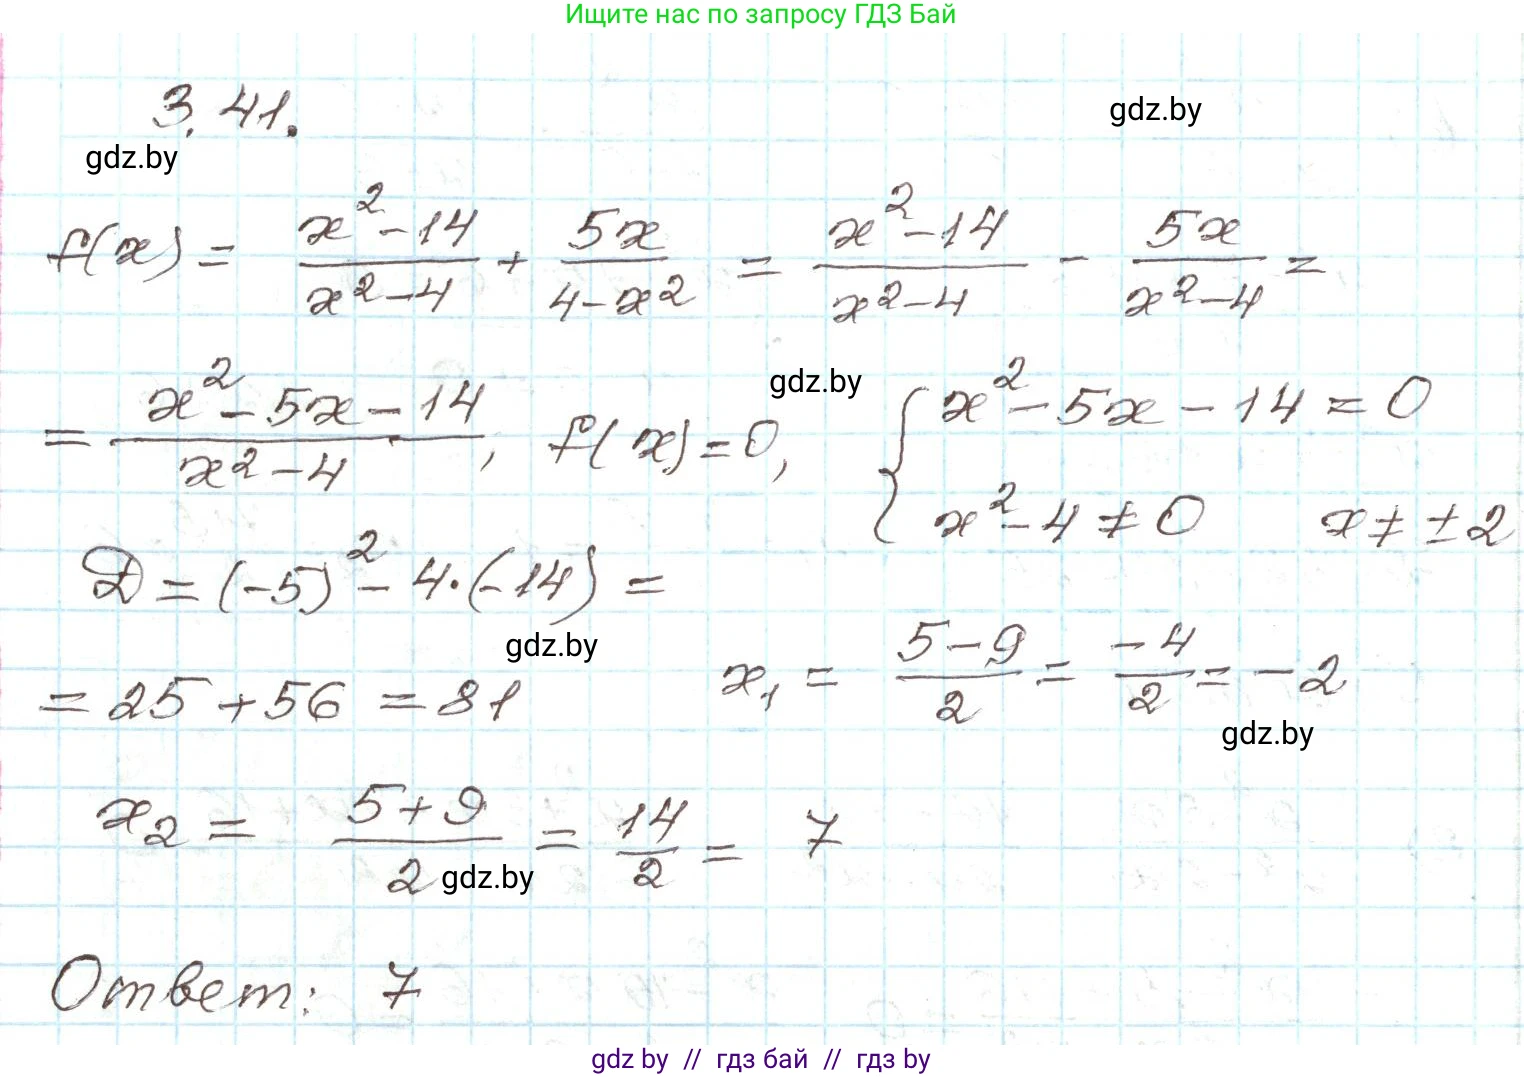 Ищите нас по запросу ГДЗ Бай
3.41.
gdz.by
gdz.by
f(x) = \frac{x^2-14}{x^2-4} + \frac{5x}{4-x^2} = \frac{x^2-14}{x^2-4} - \frac{5x}{x^2-4} =
= \frac{x^2-5x-14}{x^2-4}, f(x)=0, { x^2-5x-14=0
gdz.by
x^2-4≠0 x≠±2
D=(-5)^2-4·(-14)=
gdz.by
=25+56=81 x_1 = \frac{5-9}{2} = \frac{-4}{2} = -2
gdz.by
x_2 = \frac{5+9}{2} = \frac{14}{2} = 7
gdz.by
Ответ: 7
gdz by // гдз бай // гдз by